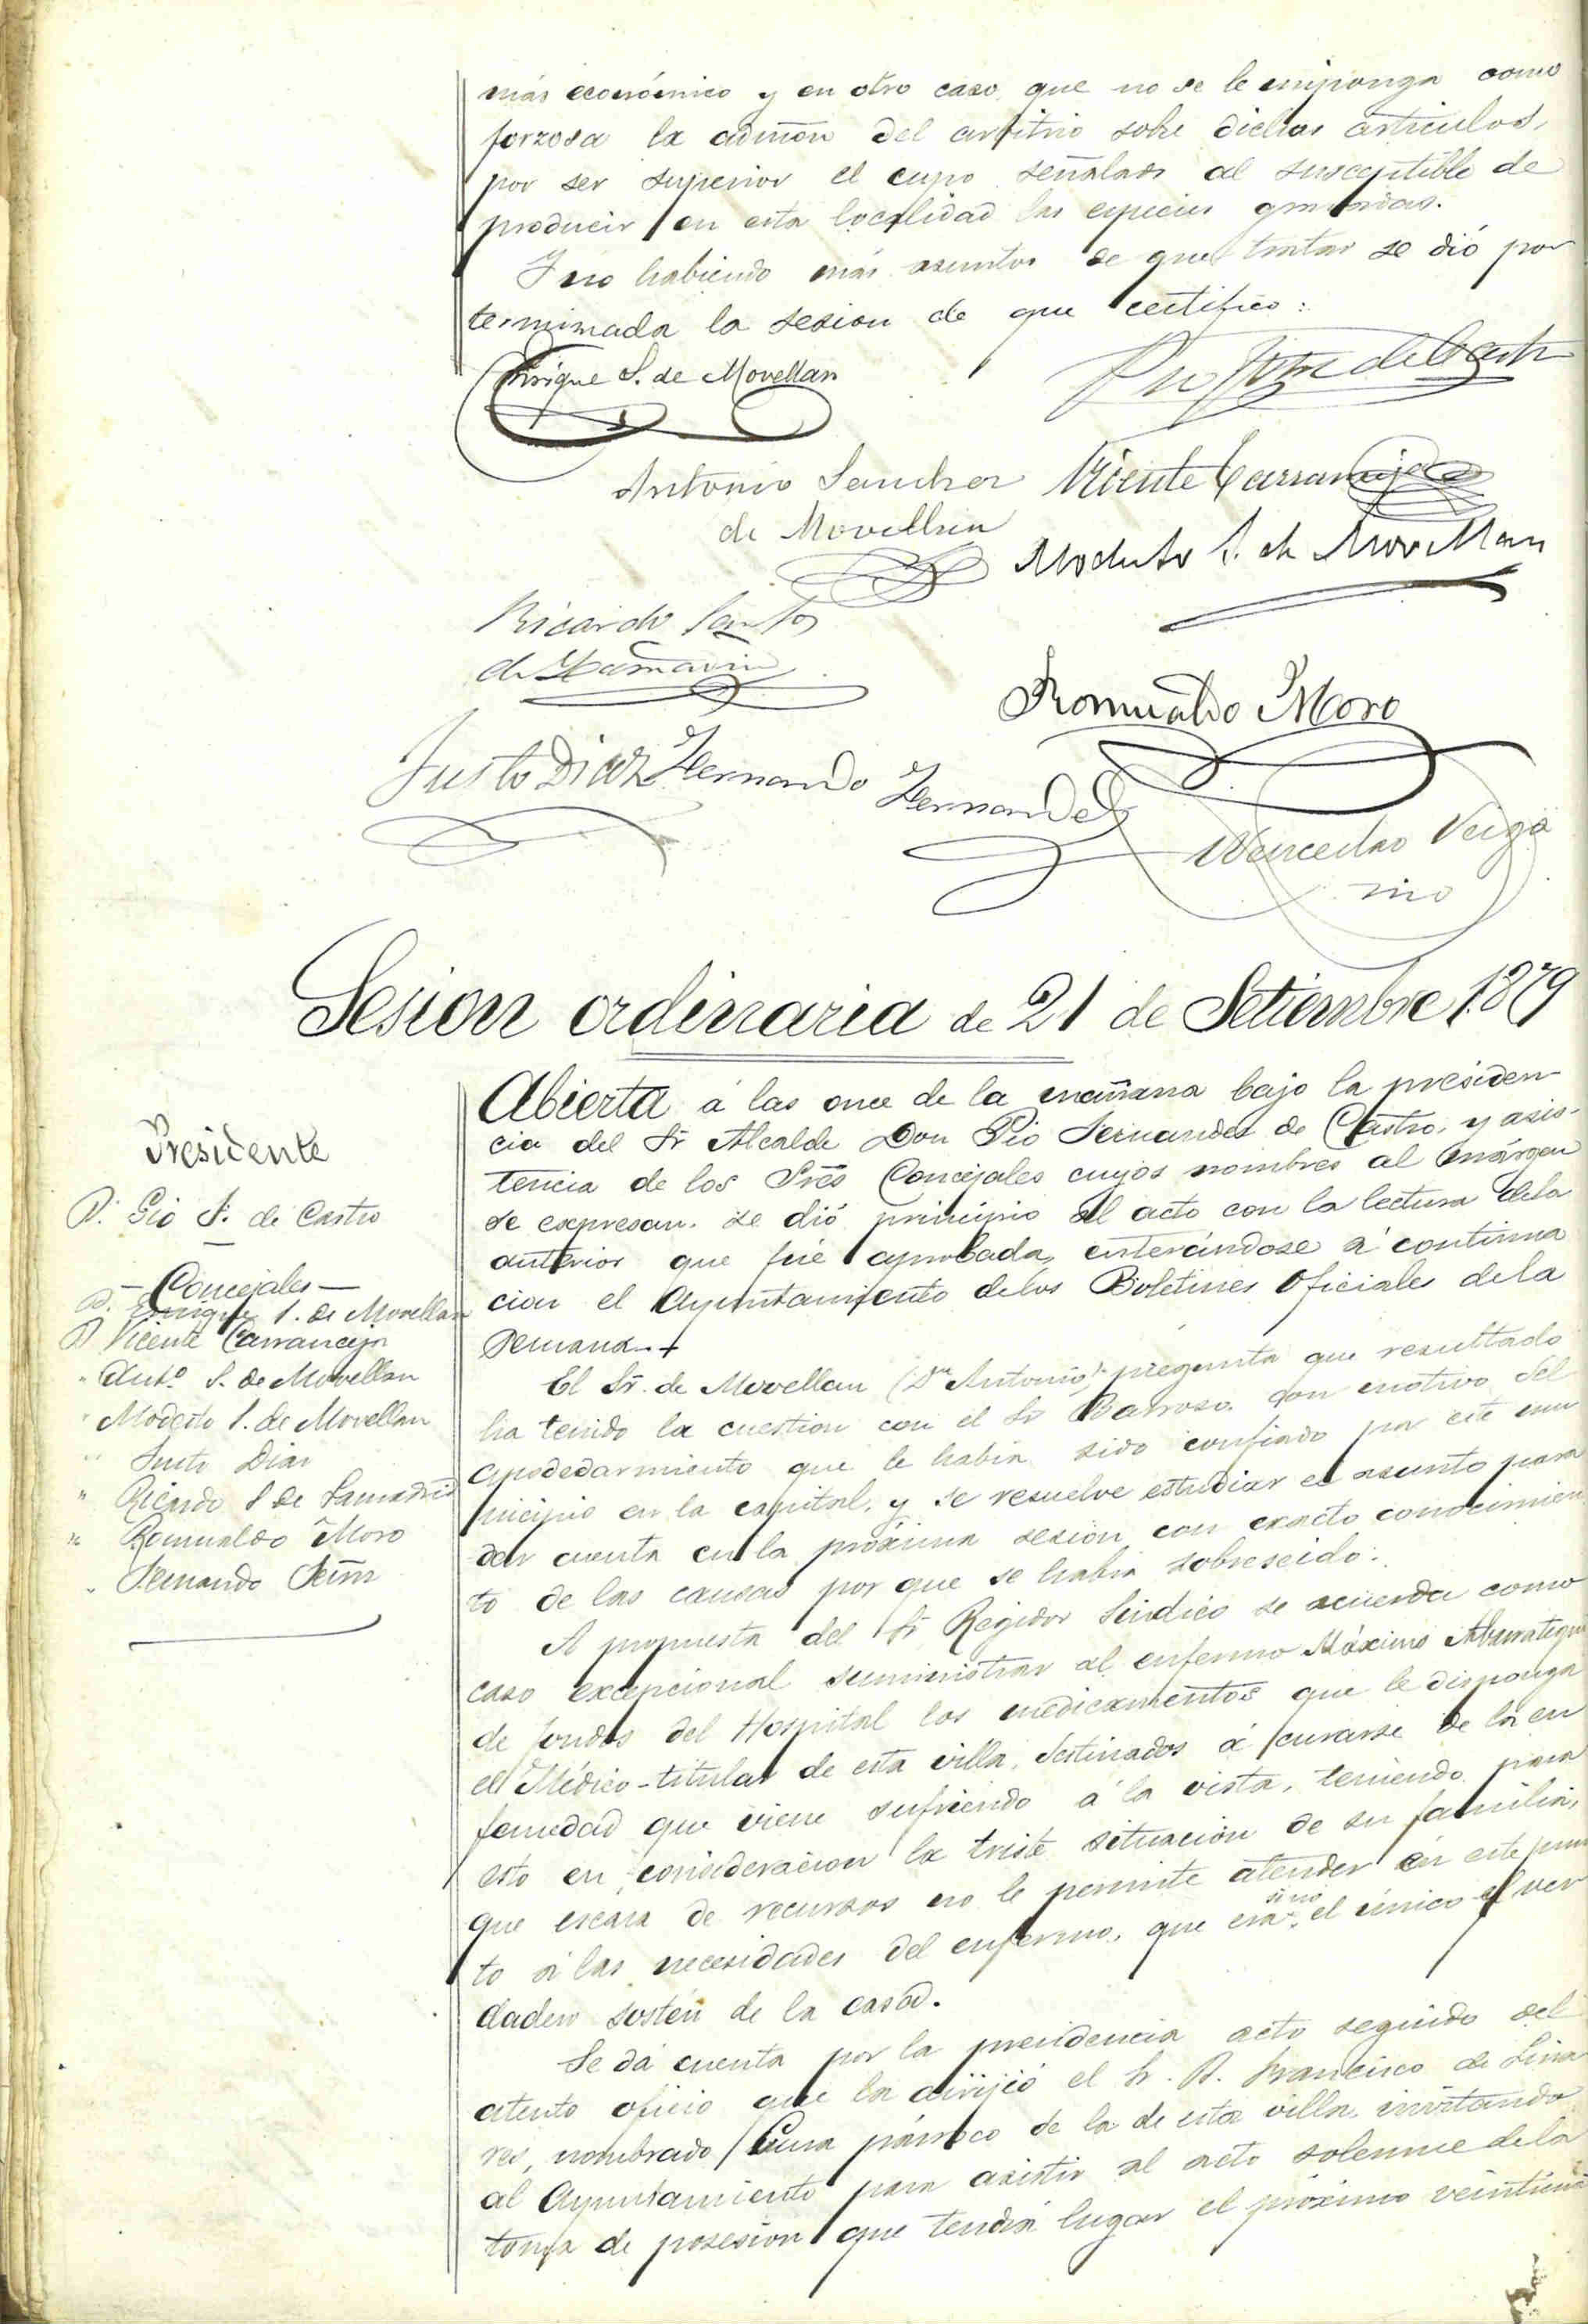 más económico y en otro caso, que no se le imponga como
forzosa la admón del arbitrio sobre dichos artículos,
por ser superior el cupo señalado al susceptible de
producir en esta localidad las especies gravadas.
Y no habiendo más asuntos de que tratar se dió por
terminada la sesion de que certifico:
Enrique S. de Movellan
Pio Frz de Castro
Antonio Sanchez
de Movellan
Vicente Carranceja
Modesto S. de Movellan
Ricardo Santos
de Lamadrid
Romualdo Moro
Justo Diaz
Fernando Fernandez
Wenceslao Veiga
Sesion ordinaria de 21 de Setiembre 1.879
Presidente
D. Pio F. de Castro
Concejales
D. Enrique S. de Movellan
D. Vicente Carranceja
" Antº S. de Movellan
" Modesto S. de Movellan
" Justo Diaz
" Ricardo S de Lamadrid
" Romualdo Moro
" Fernando
Abierta á las once de la mañana bajo la presiden-
cia del Sr Alcalde Don Pio Fernandez de Castro, y asis-
tencia de los Sres Concejales cuyos nombres al márgen
se expresan. se dió principio al acto con la lectura dela
anterior que fué aprobada, enterándose á continua
cion el Ayuntamiento delos Boletines Oficiales dela
semana.
El Sr. de Movellan (Dn Antonio): pregunta que resultado
ha tenido la cuestion con el Sr Barroso con motivo del
apodedarmiento que le habia sido confiado por este mu
nicipio en la capital, y se resuelve estudiar el asunto para
dar cuenta en la próxima sesion con exacto conocimien
to de las causas por que se habia sobreseido.
A propuesta del Sr Regidor Sindico se acuerda como
caso excepcional suministrar al enfermo Máximo Abarrategui
de fondos del Hospital los medicamentos que le disponga
el Médico-titular de esta villa, destinados á curarse de la en
fermedad que viene sufriendo á la vista, teniendo para
esto en consideracion la triste situacion de su familia,
que escasa de recursos no le permite atender en este pun
to á las necesidades del enfermo, que era, sino el único el ver
dadero sostén de la casa.
Se dá cuenta por la presidencia acto seguido del
atento oficio que la dirijió el Sr. D. Francisco de Lina
res, nombrado Cura párroco de la de esta villa invitando
al Ayuntamiento para asistir al acto solemne dela
toma de posesion que tendrá lugar el próximo